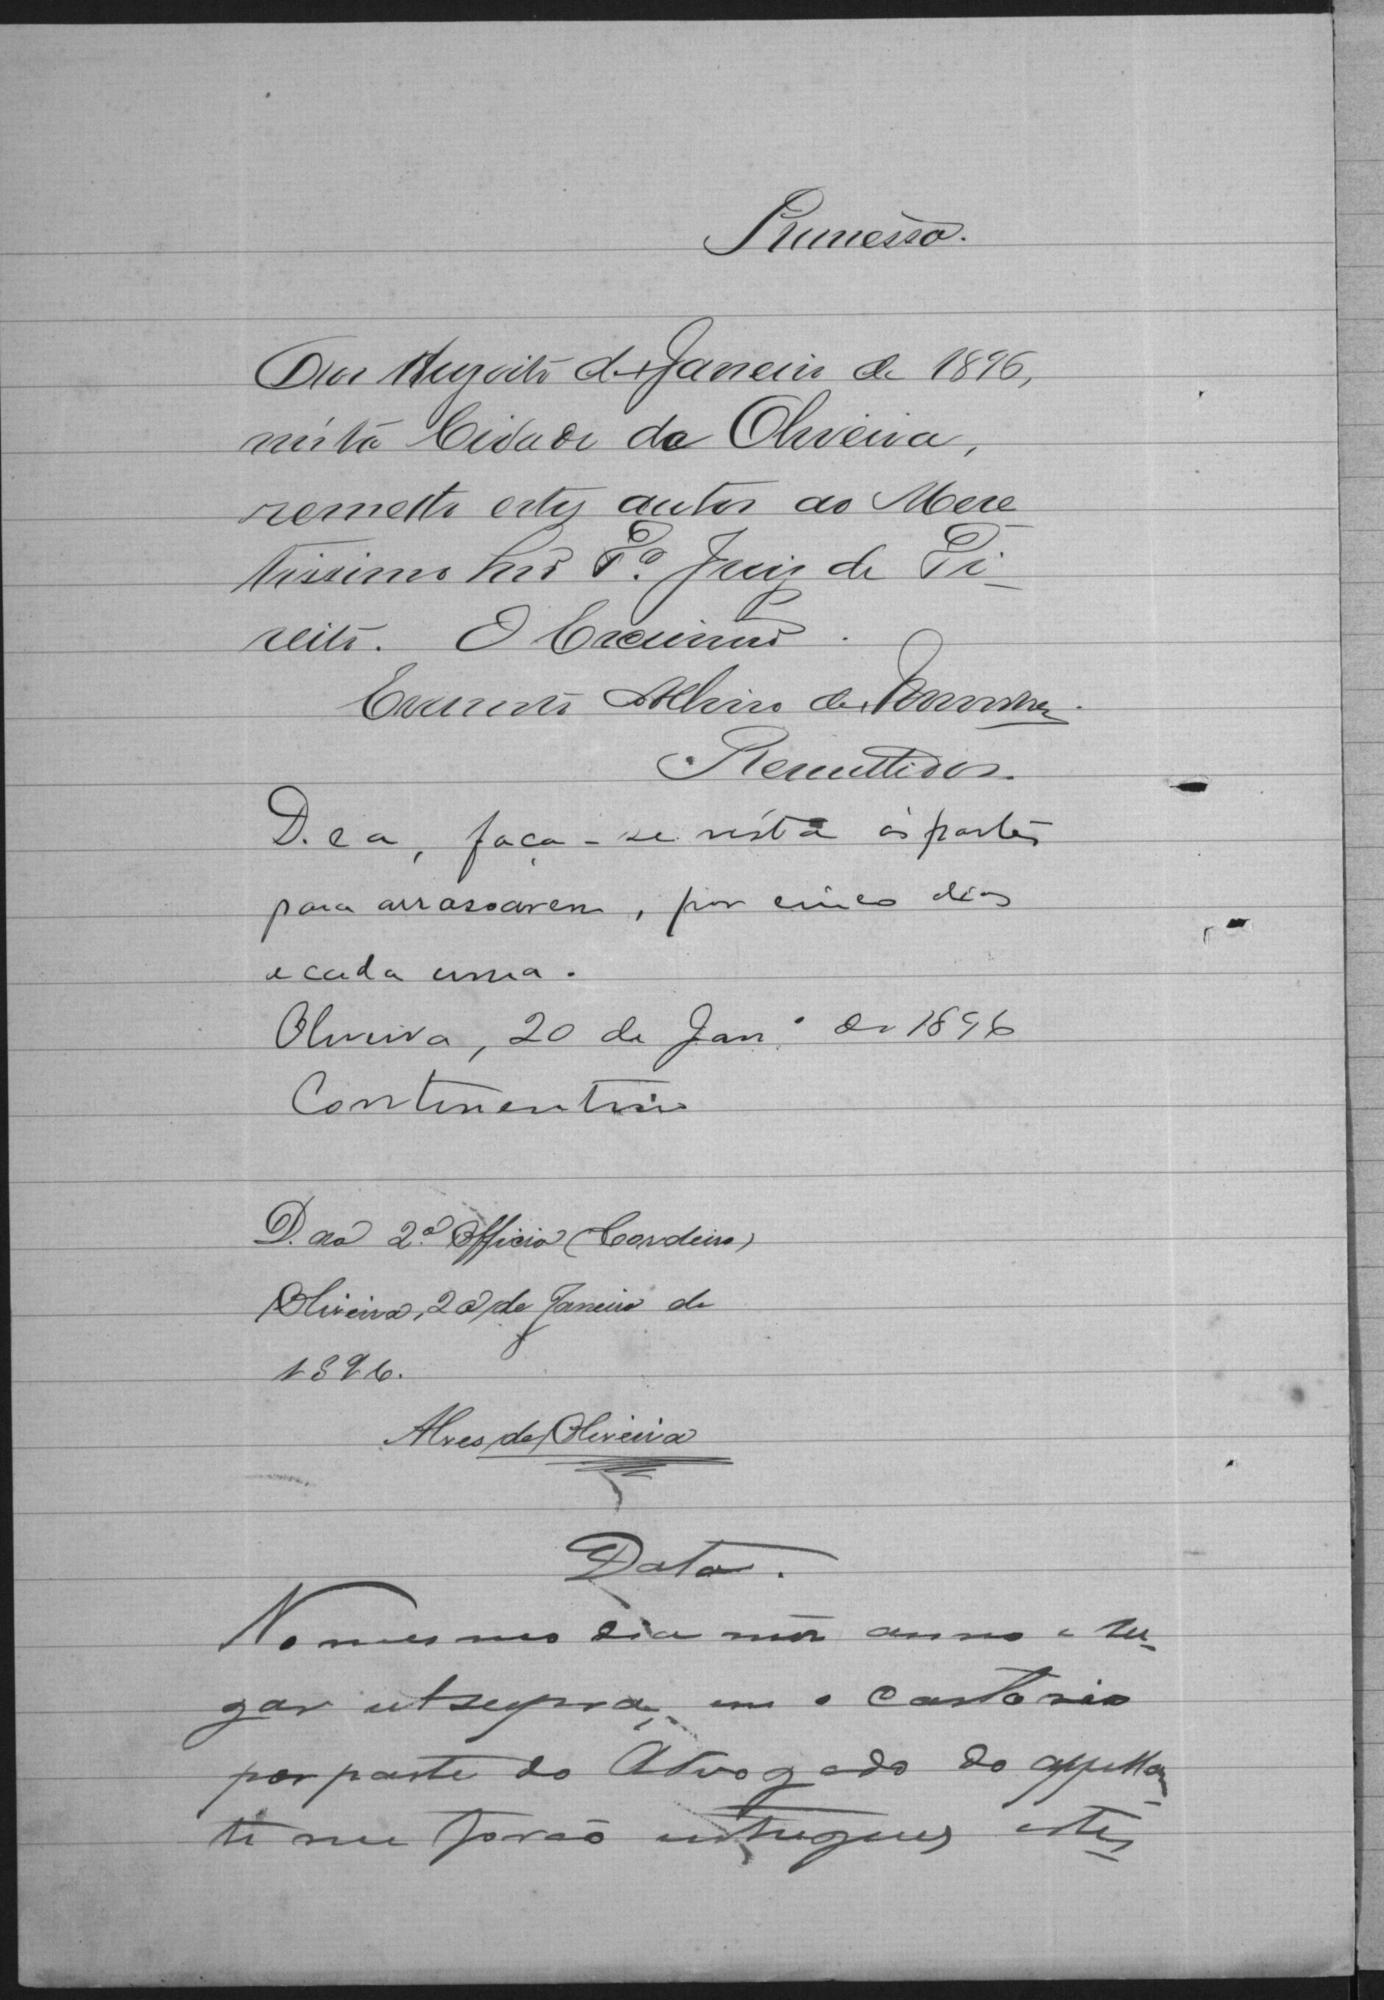 Remessa.
Aos dezoito de Janeiro de 1896,
nesta Cidade de Oliveira,
remetto estes autos ao Mere
tissimo Juiz de Di-
reito. O Escrivão
Albino de
Remettidos.
D. e a, faça-se vista ás partes
para arrasoarem, por cinco dias
a cada uma.
Oliveira, 20 de Jan.º de 1896
Continentino
D. ao 2º Officio (Cordeiro)
Oliveira, 20 de Janeiro de
1896.
Alves de Oliveira
Data.
No mesmo dia mez anno e lu-
gar utsupra, em o cartorio
por parte do Advogado do appellan-
te me forão entregues estes